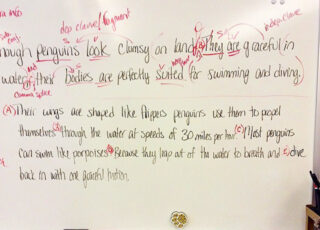 dep clause/fragment
indep clause
nough penguins look clumsy on land, They are graceful in
water, their bodies are perfectly suited for swimming and diving.
comma splice
(A) Their wings are shaped like flippers penguins use them to propel
themselves (B) through the water at speeds of 30 miles per hour. (C) Most penguins
can swim like porpoises Because they leap out of the water to breath and dive
back in with one graceful motion.